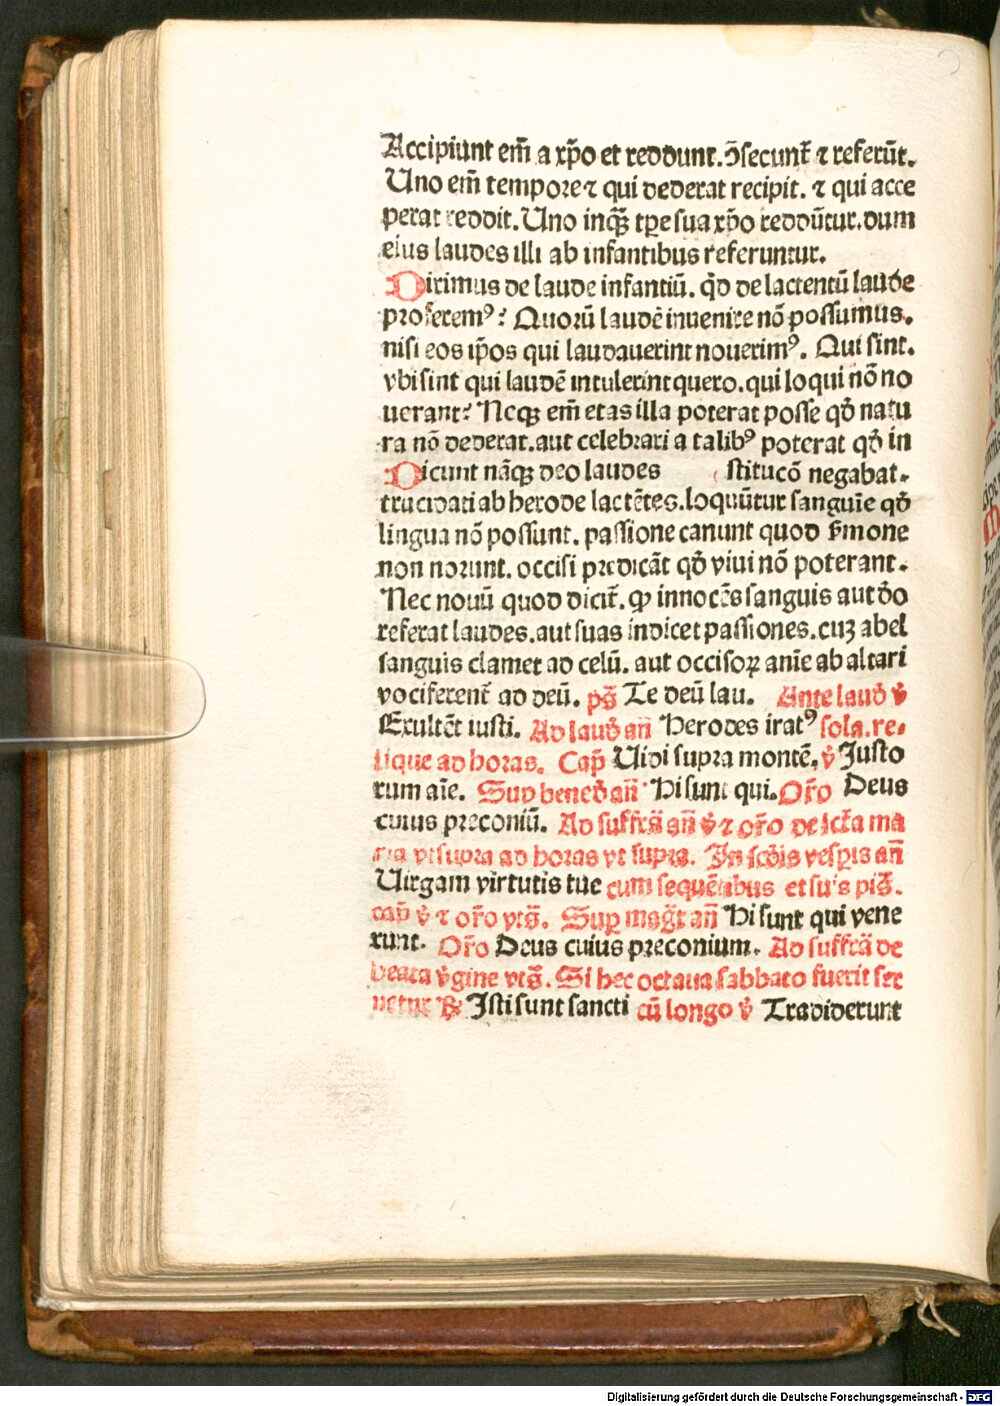 Accipiunt em̄ a xp̄o et reddunt. ↄ̄secunt᷑ ⁊ referūt.
Uno em̄ tempore ⁊ qui dederat recipit. ⁊ qui acce
perat reddit. Uno inqꝫ tꝑe sua xp̄o reddūtur. dum
eius laudes illi ab infantibus referuntur.
Diximus de laude infantiū. qd̄ de lactentū laude
proferemꝰ? Quorū laudē inuenire nō possumus.
nisi eos ip̄os qui laudauerint nouerimꝰ. Qui sint.
vbi sint qui laudē intulerint quero. qui loqui nō no
uerant? Neqꝫ em̄ etas illa poterat posse qd̄ natu
ra nō dederat. aut celebrari a talibꝰ poterat qd̄ in
Dicunt nāqꝫ deo laudes ( stitucō negabat.
trucidati ab herode lactētes. loquūtur sanguīe qd̄
lingua nō possunt. passione canunt quod s̄mone
non norunt. occisi predicāt qd̄ viui nō poterant.
Nec nouū quod dicit᷑. ꝙ innocēs sanguis aut do
referat laudes. aut suas indicet passiones. cuꝫ abel
sanguis clamet ad celū. aut occisoꝝ anīe ab altari
vociferent᷑ ad deū. ps̄ Te deū lau. Ante laud̄ v̄
Exultēt iusti. Ad laud̄ an̄ Herodes iratꝰ sola. re-
lique ad horas. Cap̄ Uidi supra montē. v̄ Justo
rum aīe. Sup bened̄ an̄ Hi sunt qui. Or̄o Deus
cuius preconiū. Ad suffrā an̄ v̄ ⁊ or̄o de sct̄a ma
ria vt supra ad horas vt supra. In scd̄is vesꝑis an̄
Uirgam virtutis tue cum sequētibus et su's ps̄.
cap̄ v̄ ⁊ or̄o vts̄. Suꝑ maḡt an̄ Hi sunt qui vene
runt. Or̄o Deus cuius preconium. Ad suffrā de
beata v̄gine vts̄. Si hec octaua sabbato fuerit ser
uetur ℞ Isti sunt sancti cū longo v̄ Tradiderunt
Digitalisierung gefördert durch die Deutsche Forschungsgemeinschaft - DFG